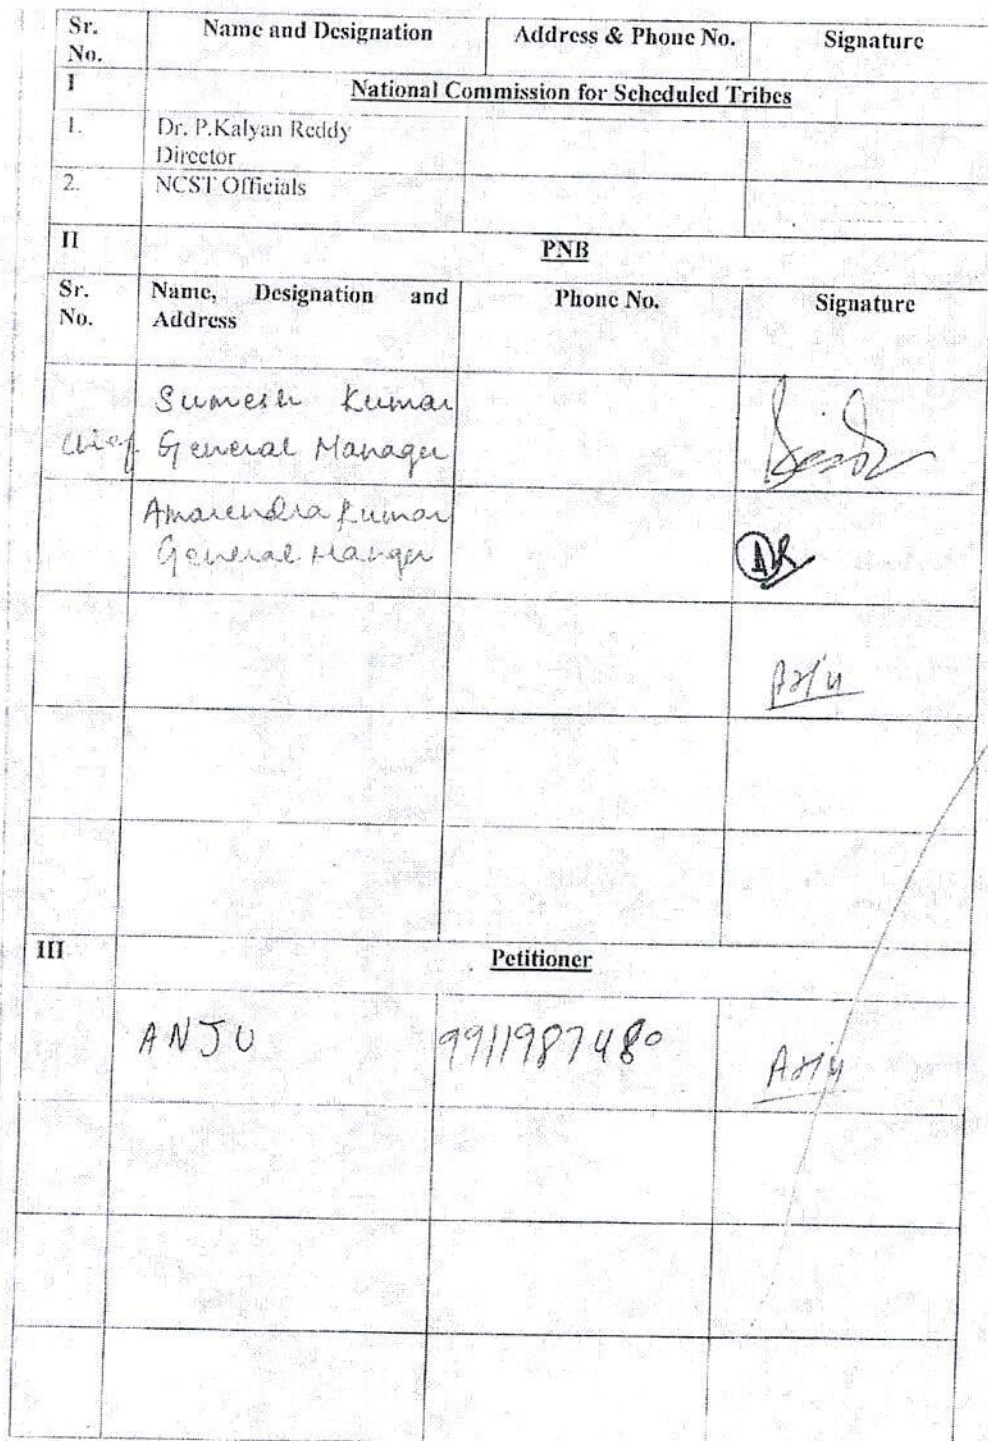 Sr. No. Name and Designation Address & Phone No. Signature
I National Commission for Scheduled Tribes
1. Dr. P.Kalyan Reddy
Director
2. NCST Officials
II PNB
Sr. No. Name, Designation and Address Phone No. Signature
Sumesh Kumar
Chief General Manager
Amarendra Kumar
General Manger
AK
III Petitioner
ANJU 9911987480